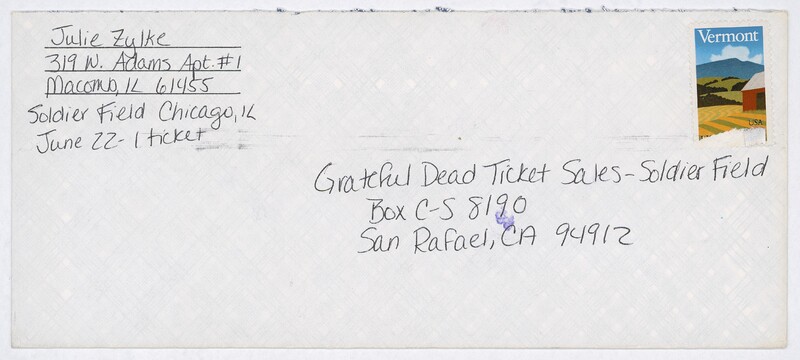 Julie Zylke
319 W. Adams Apt. #1
Macomb, IL 61455
Soldier Field Chicago, IL
June 22 - 1 ticket
Vermont
USA
Grateful Dead Ticket Sales - Soldier Field
Box C-S 8190
San Rafael, CA 94912